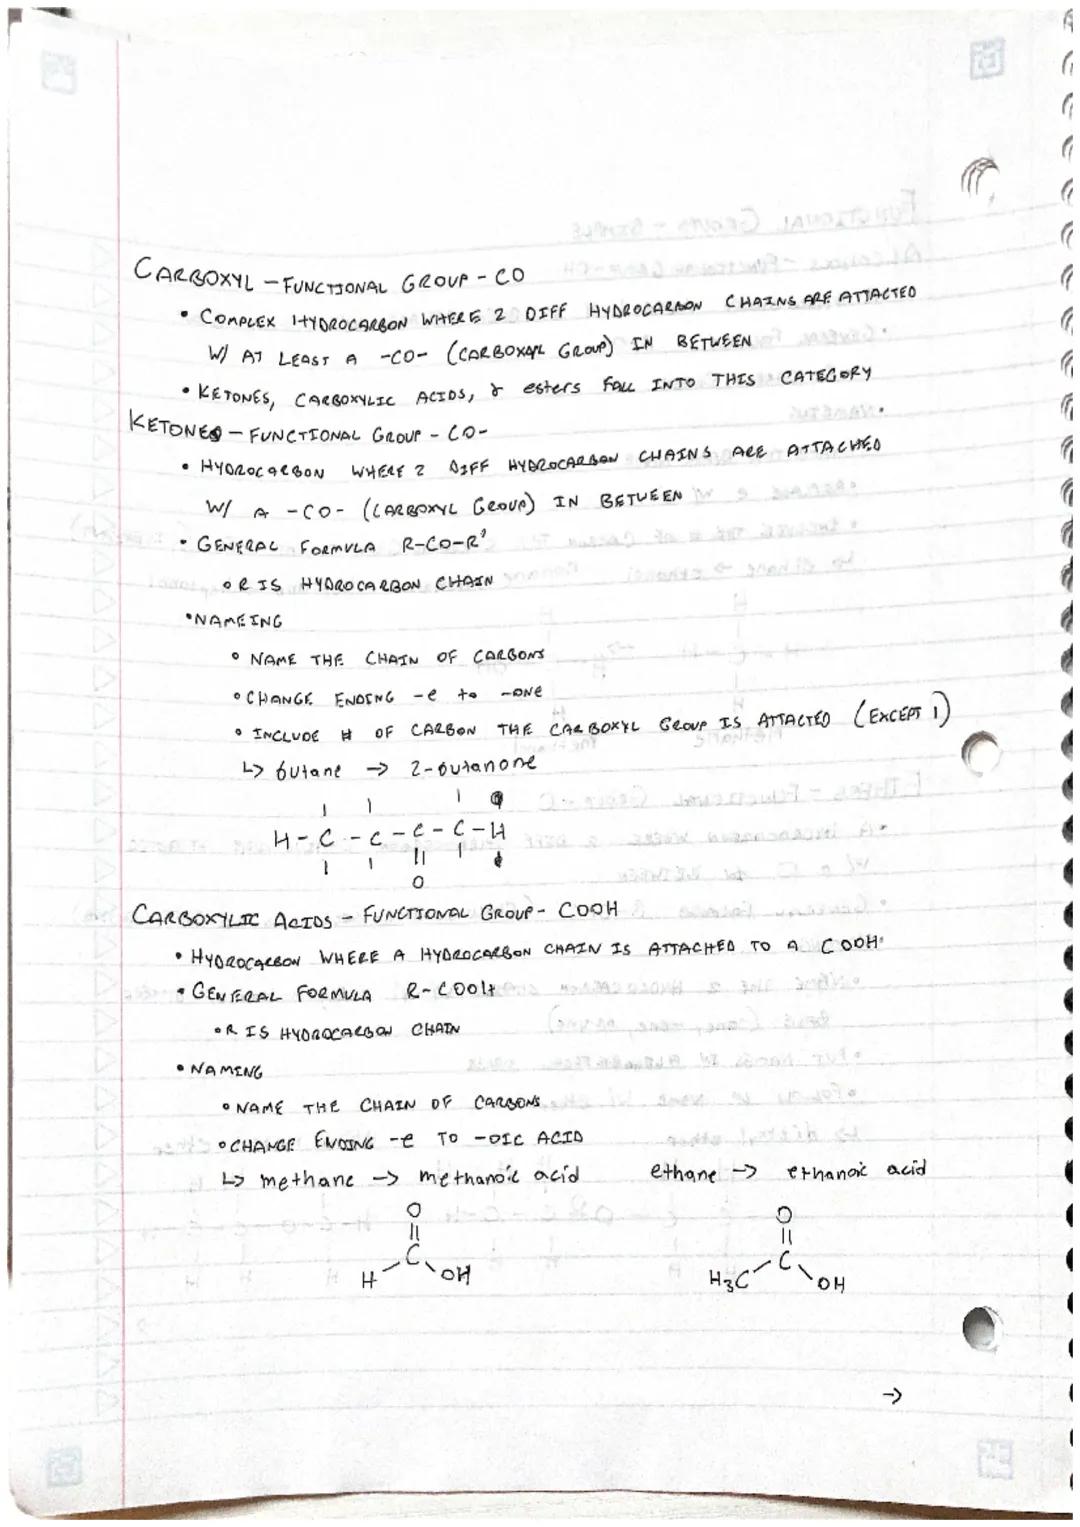 CARBOXYL - FUNCTIONAL GROUP - CO
• COMPLEX HYDROCARBON WHERE 2 DIFF HYDROCARBON CHAINS ARE ATTACTED
W/ AT LEAST A -CO- (CARBOXYL GROUP) IN BETWEEN
• KETONES, CARBOXYLIC ACIDS, & esters FALL INTO THIS CATEGORY
KETONES - FUNCTIONAL GROUP - CO-
• HYDROCARBON WHERE 2 DIFF HYDROCARBON CHAINS ARE ATTACHED
W/ A -CO- (CARBOXYL GROUP) IN BETWEEN
• GENERAL FORMULA R-CO-R'
• R IS HYDROCARBON CHAIN
• NAMEING
• NAME THE CHAIN OF CARBONS
• CHANGE ENDING -e to -ONE
• INCLUDE # OF CARBON THE CARBOXYL GROUP IS ATTACTED (EXCEPT 1)
↳ butane → 2-butanone
H-C-C-C-C-H
O
CARBOXYLIC ACIDS - FUNCTIONAL GROUP - COOH
• HYDROCARBON WHERE A HYDROCARBON CHAIN IS ATTACHED TO A COOH
• GENERAL FORMULA R-COOH
• R IS HYDROCARBON CHAIN
• NAMING
• NAME THE CHAIN OF CARBONS
• CHANGE ENDING -e TO -OIC ACID
↳ methane → methanoic acid ethane → ethanoic acid
O O
C C
H OH H₃C OH
→